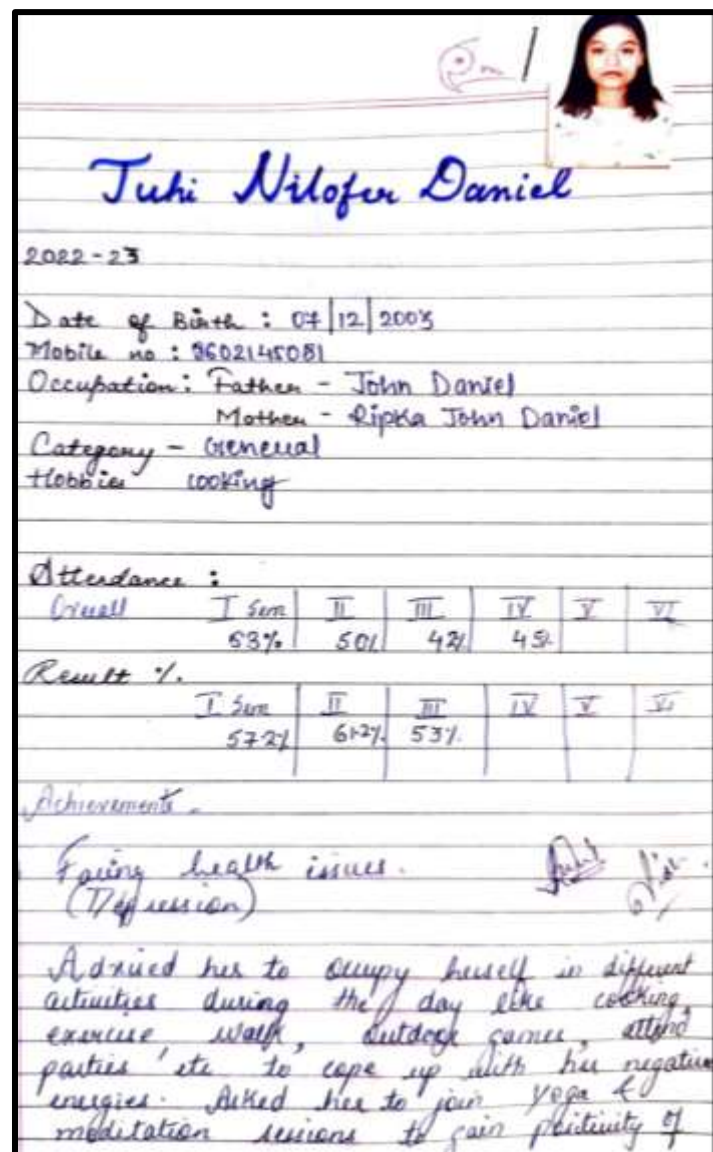 Juhi Nilofer Daniel
2022-23
Date of Birth : 07|12|2003
Mobile no : 9602145081
Occupation : Father - John Daniel
Mother - Ripka John Daniel
Category - General
Hobbies cooking
Attendance :
Overall I Sem II III IV V VI
53% 50% 42% 45%
Result %.
I Sem II III IV V VI
57.2% 61.2% 53%.
Achievements -
Facing health issues.
(Depression)
Adviced her to occupy herself in different
activities during the day like cooking,
exercise, walk, outdoor games, attend
parties etc to cope up with her negative
energies. Asked her to join yoga &
meditation sessions to gain positivity of